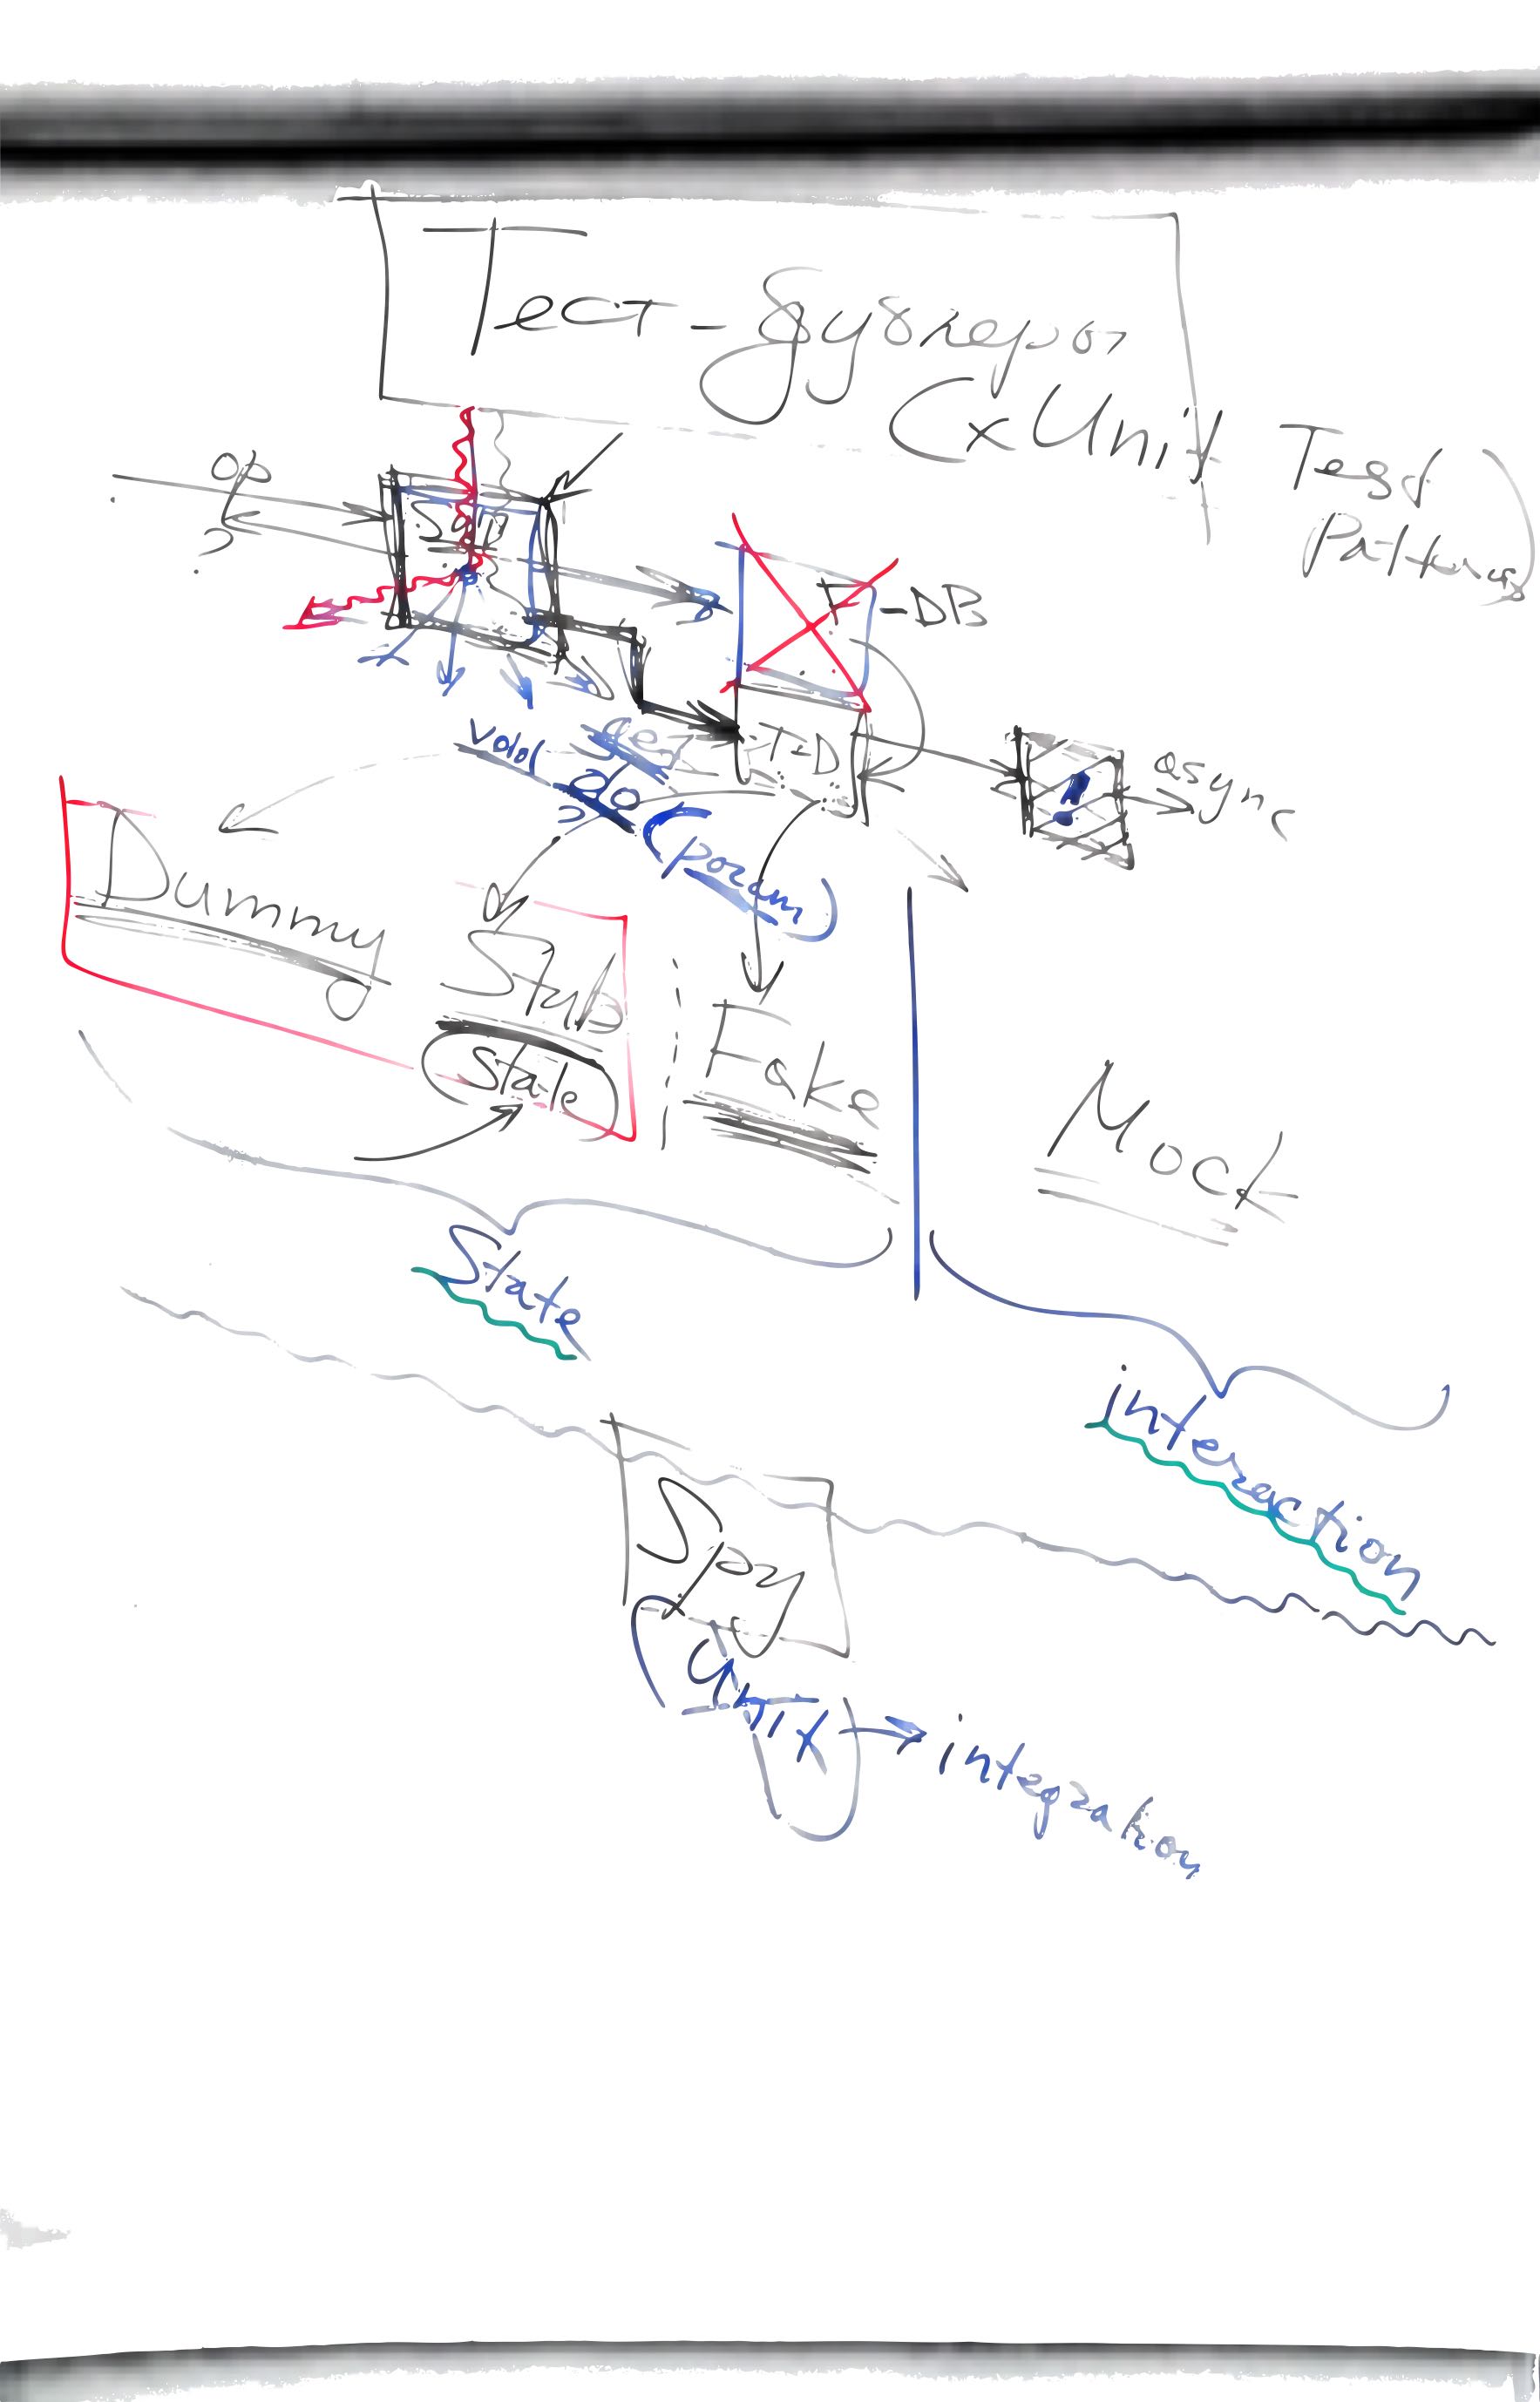 Тест-дублеры
(xUnit Test
Patterns)
op
F-DB
T-D
void do
(param)
async
Dummy
Stub
(State)
Fake
Mock
State
interaction
Spy
integration